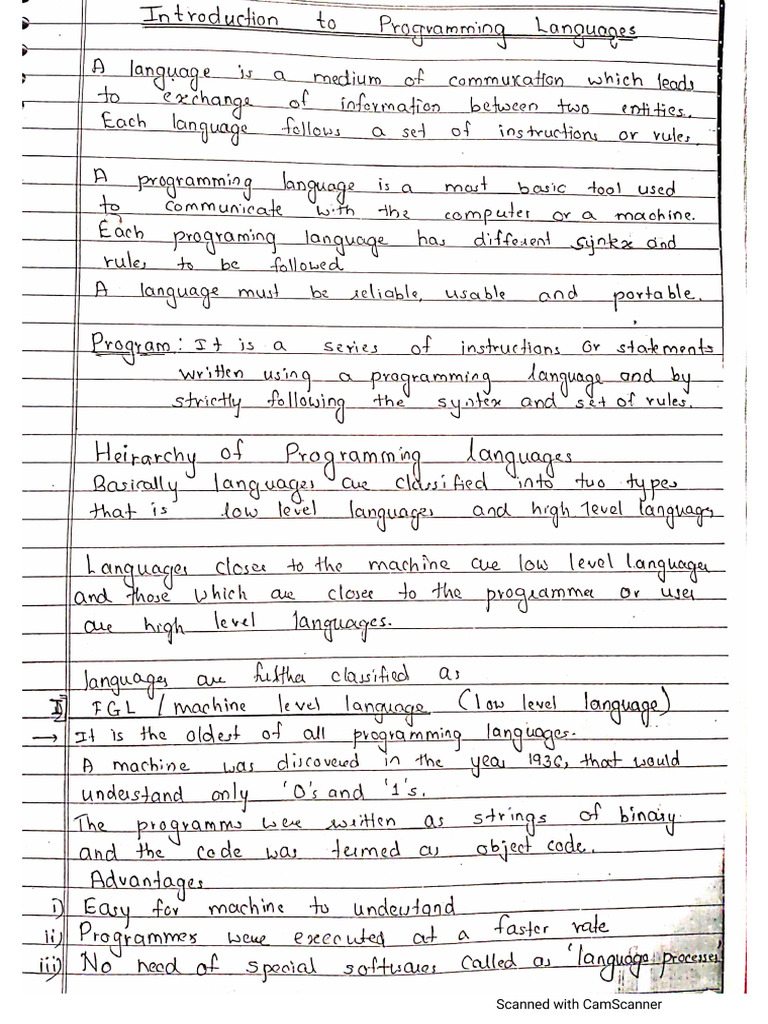 Introduction to Programming Languages
A language is a medium of commuxation which leads
to exchange of information between two entities.
Each language follows a set of instructions or rules.
A programming language is a most basic tool used
to communicate with the computer or a machine.
Each programing language has different syntex and
rules to be followed
A language must be reliable, usable and portable.
Program: It is a series of instructions or statements
written using a programming language and by
strictly following the syntex and set of rules.
Heirarchy of Programming languages
Basically languages are classified into two types
that is low level languages and high level language
Languages closer to the machine are low level languages
and those which are closer to the programmer or user
are high level languages.
languages are further classified as
I) FGL / machine level language (low level language)
→ It is the oldest of all programming languages.
A machine was discovered in the year 1936, that would
understand only '0's and '1's.
The programms were written as strings of binary
and the code was termed as object code.
Advantages
i) Easy for machine to understand
ii) Programmes were executed at a faster rate
iii) No need of special softwares called as 'language processes'
Scanned with CamScanner